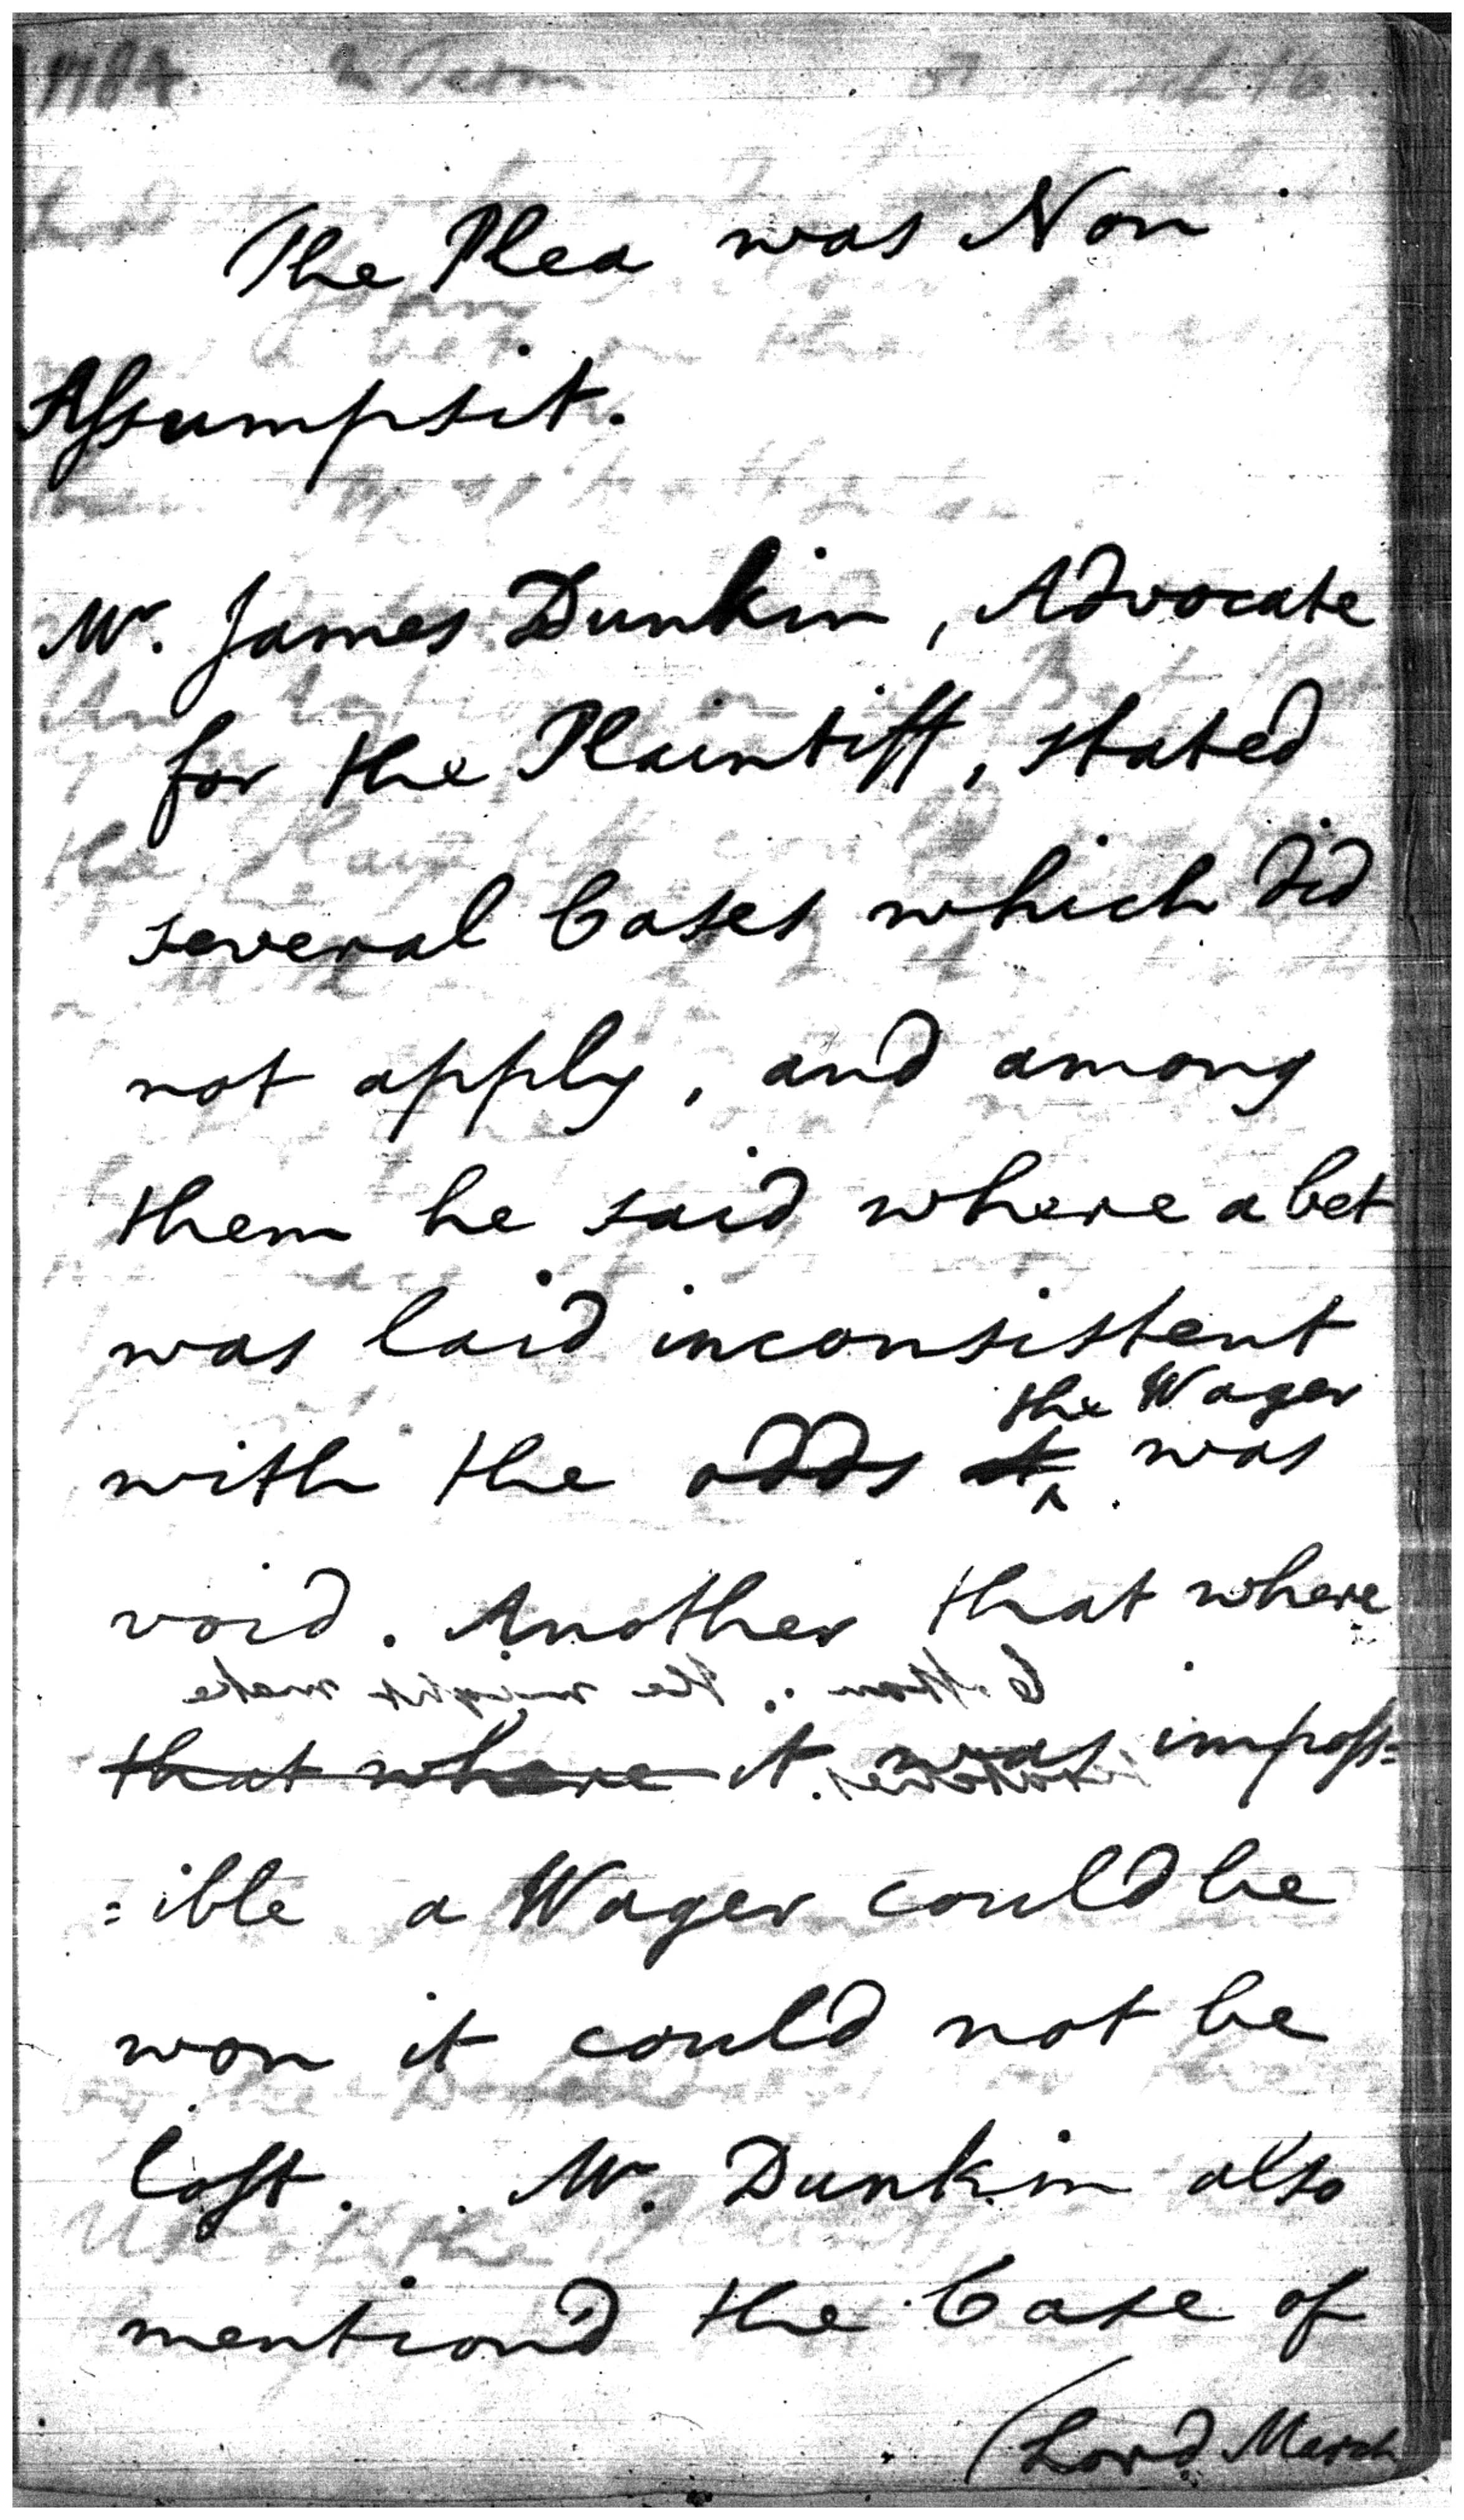 The Plea was Non
Assumpsit.
Mr. James Dunkin, Advocate
for the Plaintiff, stated
several Cases which did
not apply, and among
them he said where a bet
was laid inconsistent
the Wager
with the odds it was
void. Another that where
that where it was imposs=
=ible a Wager could be
won it could not be
lost. Mr. Dunkin also
mention'd the Case of
(Lord March